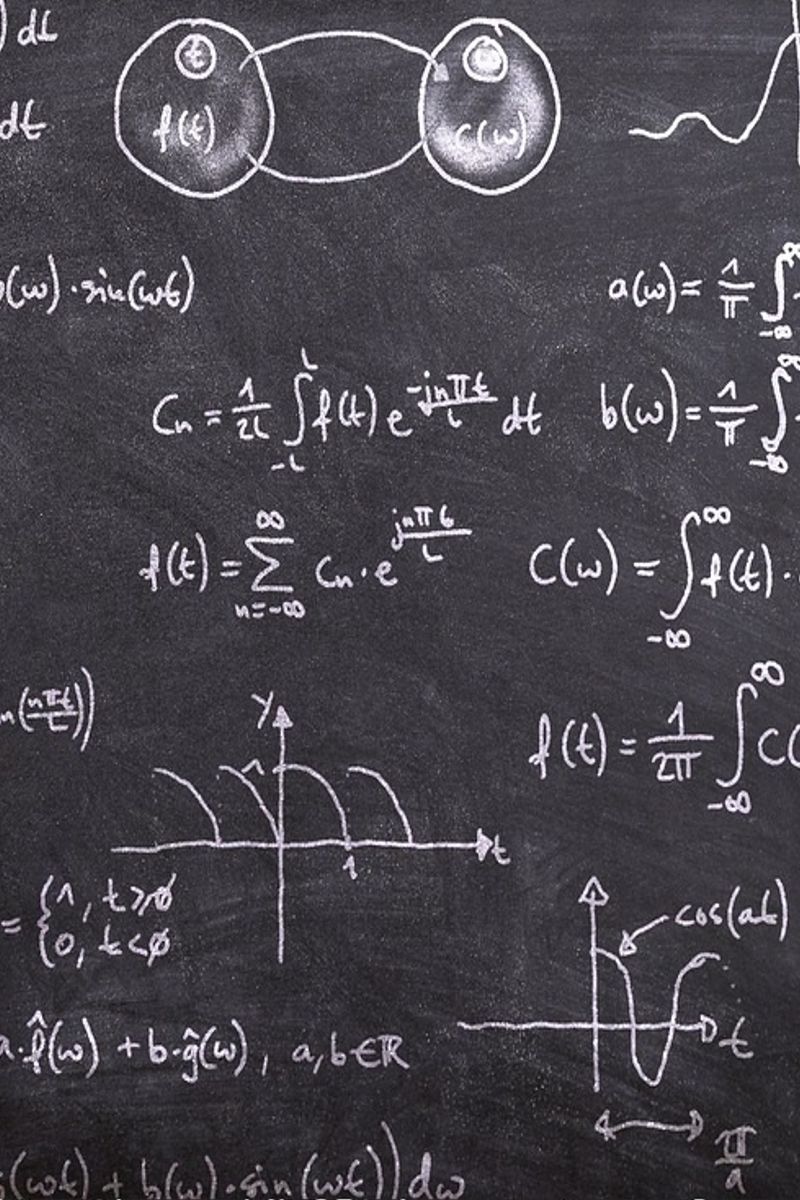 ) dt
t ω
dt f(t) C(ω)
b(ω)·sin(ωt) a(ω)= 1/π ∫_{-∞}^{∞}
C_n = 1/2L ∫_{-L}^{L} f(t) e^{-jnπt/L} dt b(ω)= 1/π ∫_{-∞}^{∞}
f(t) = ∑_{n=-∞}^{∞} C_n · e^{jnπt/L} C(ω) = ∫_{-∞}^{∞} f(t) ·
n(nπt/L)) f(t) = 1/2π ∫_{-∞}^{∞} C(
y
1
t
1
= { 1, t≥0
0, t<0
cos(at)
t
a·f̂(ω) + b·ĝ(ω), a,b∈ℝ
π/a
(ωt) + b(ω)·sin(ωt)) dω